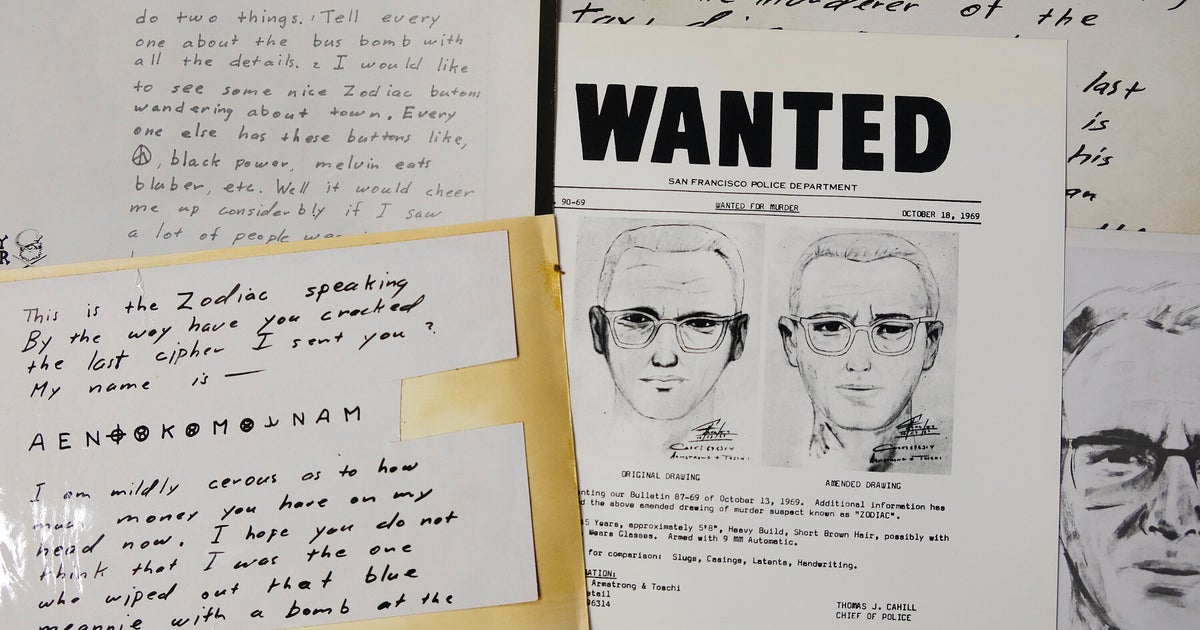 do two things. Tell every
one about the bus bomb with
all the details. 2 I would like
to see some nice Zodiac butons
wandering about town. Every
one else has these buttons like,
☮, black power, melvin eats
bluber, etc. Well it would cheer
me up considerbly if I saw
a lot of people
This is the Zodiac speaking
By the way have you cracked
the last cipher I sent you?
My name is —
A E N ⌖ ⊗ K ⊗ M ⊗ N A M
I am mildly cerous as to how
much money you have on my
head now. I hope you do not
think that I was the one
who wiped out that blue
meannie with a bomb at the
murderer of the
last
is
his
WANTED
SAN FRANCISCO POLICE DEPARTMENT
90-69 WANTED FOR MURDER OCTOBER 18, 1969
ORIGINAL DRAWING AMENDED DRAWING
nting our Bulletin 87-69 of October 13, 1969. Additional information has
d the above amended drawing of murder suspect known as "ZODIAC".
5 Years, approximately 5'8", Heavy Build, Short Brown Hair, possibly with
Wears Glasses. Armed with 9 MM Automatic.
for comparison: Slugs, Casings, Latents, Handwriting.
ATION:
Armstrong & Toschi
etail
96314
THOMAS J. CAHILL
CHIEF OF POLICE